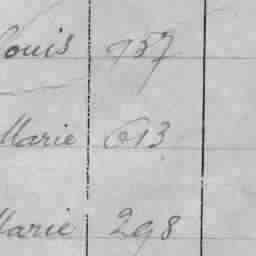 Louis 757
Marie 613
Marie 298